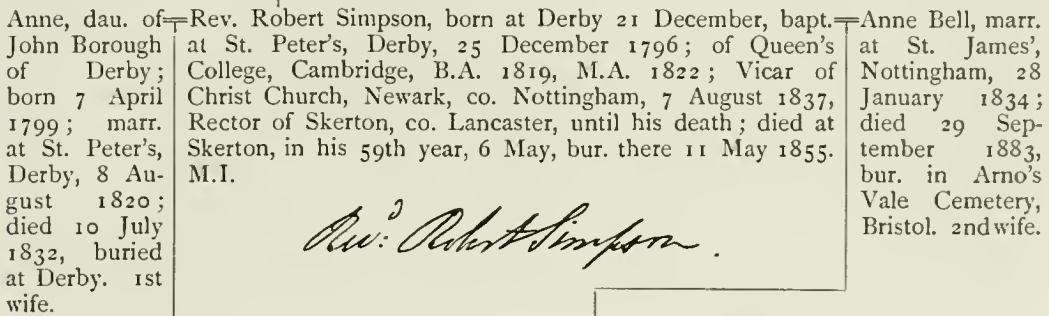 Anne, dau. of
John Borough
of Derby;
born 7 April
1799; marr.
at St. Peter's,
Derby, 8 Au-
gust 1820;
died 10 July
1832, buried
at Derby. 1st
wife.
Rev. Robert Simpson, born at Derby 21 December, bapt.
at St. Peter's, Derby, 25 December 1796; of Queen's
College, Cambridge, B.A. 1819, M.A. 1822; Vicar of
Christ Church, Newark, co. Nottingham, 7 August 1837,
Rector of Skerton, co. Lancaster, until his death; died at
Skerton, in his 59th year, 6 May, bur. there 11 May 1855.
M.I.
Revd: Robert Simpson.
Anne Bell, marr.
at St. James',
Nottingham, 28
January 1834;
died 29 Sep-
tember 1883,
bur. in Arno's
Vale Cemetery,
Bristol. 2nd wife.